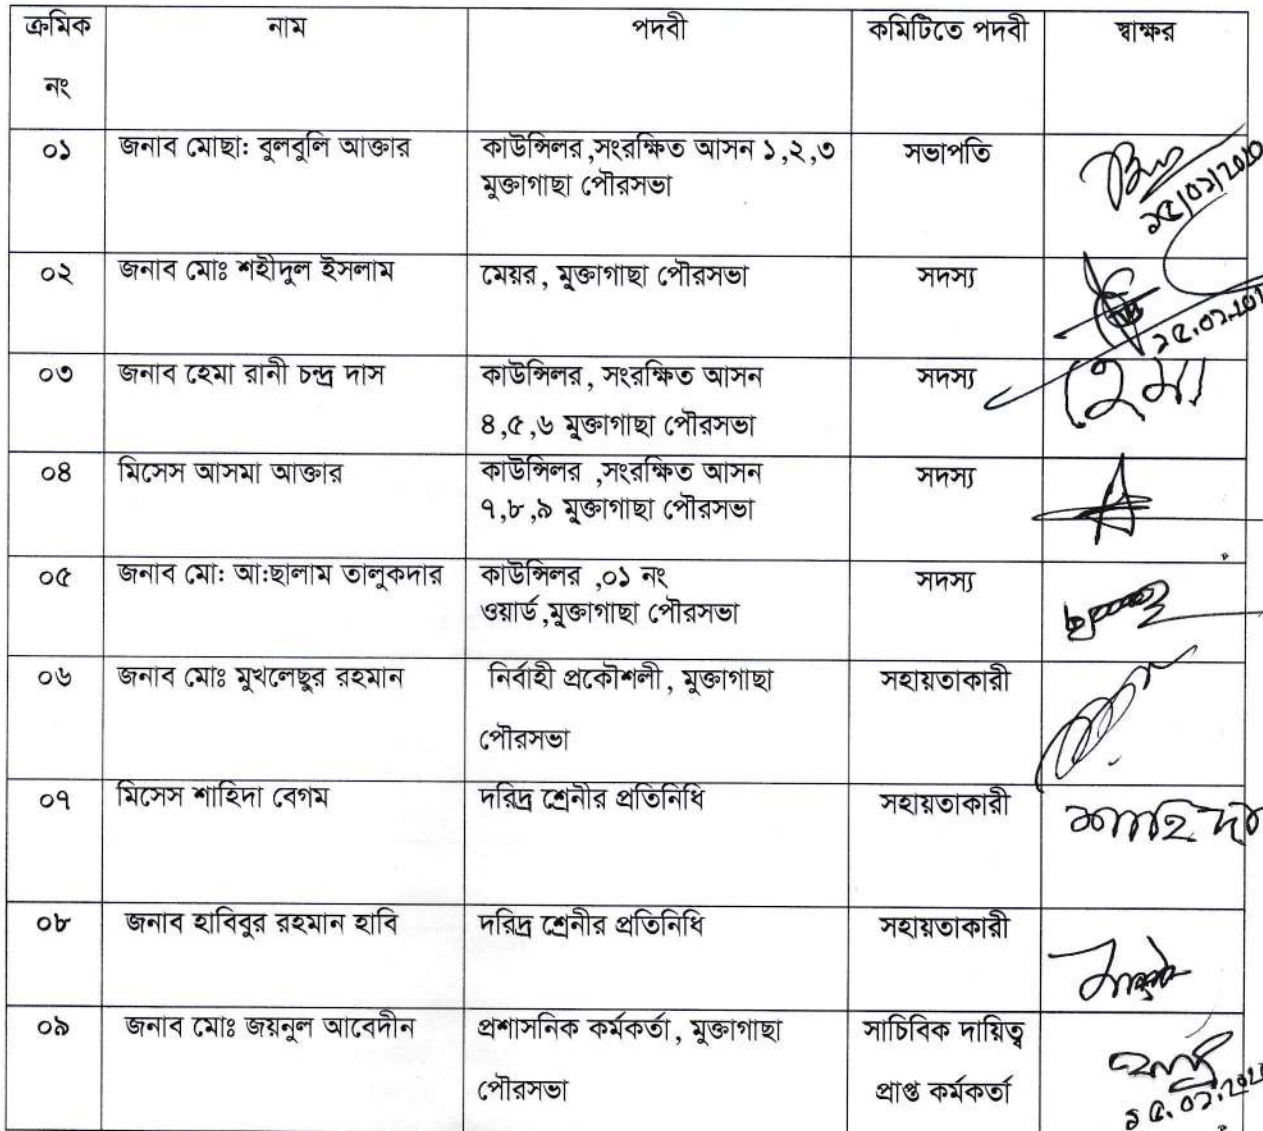 ক্রমিক নং	নাম	পদবী	কমিটিতে পদবী	স্বাক্ষর
০১	জনাব মোছা: বুলবুলি আক্তার	কাউন্সিলর ,সংরক্ষিত আসন ১,২,৩	সভাপতি
মুক্তাগাছা পৌরসভা
০২	জনাব মোঃ শহীদুল ইসলাম	মেয়র, মুক্তাগাছা পৌরসভা	সদস্য
০৩	জনাব হেমা রানী চন্দ্র দাস	কাউন্সিলর, সংরক্ষিত আসন	সদস্য	হেমা
৪,৫,৬ মুক্তাগাছা পৌরসভা
০৪	মিসেস আসমা আক্তার	কাউন্সিলর ,সংরক্ষিত আসন	সদস্য
৭,৮,৯ মুক্তাগাছা পৌরসভা
০৫	জনাব মো: আ:ছালাম তালুকদার	কাউন্সিলর ,০১ নং	সদস্য
ওয়ার্ড,মুক্তাগাছা পৌরসভা
০৬	জনাব মোঃ মুখলেছুর রহমান	নির্বাহী প্রকৌশলী, মুক্তাগাছা	সহায়তাকারী
পৌরসভা
০৭	মিসেস শাহিদা বেগম	দরিদ্র শ্রেনীর প্রতিনিধি	সহায়তাকারী	শাহিদা
০৮	জনাব হাবিবুর রহমান হাবি	দরিদ্র শ্রেনীর প্রতিনিধি	সহায়তাকারী
০৯	জনাব মোঃ জয়নুল আবেদীন	প্রশাসনিক কর্মকর্তা, মুক্তাগাছা	সাচিবিক দায়িত্ব
পৌরসভা	প্রাপ্ত কর্মকর্তা